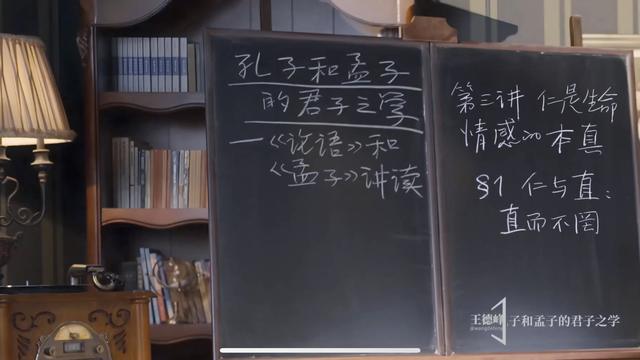 孔子和孟子
的君子之学
—《论语》和
《孟子》讲读
第三讲 仁是生命
情感的本真
§1 仁与直：
直而不罔
王德峰
@wangdefeng
子和孟子的君子之学